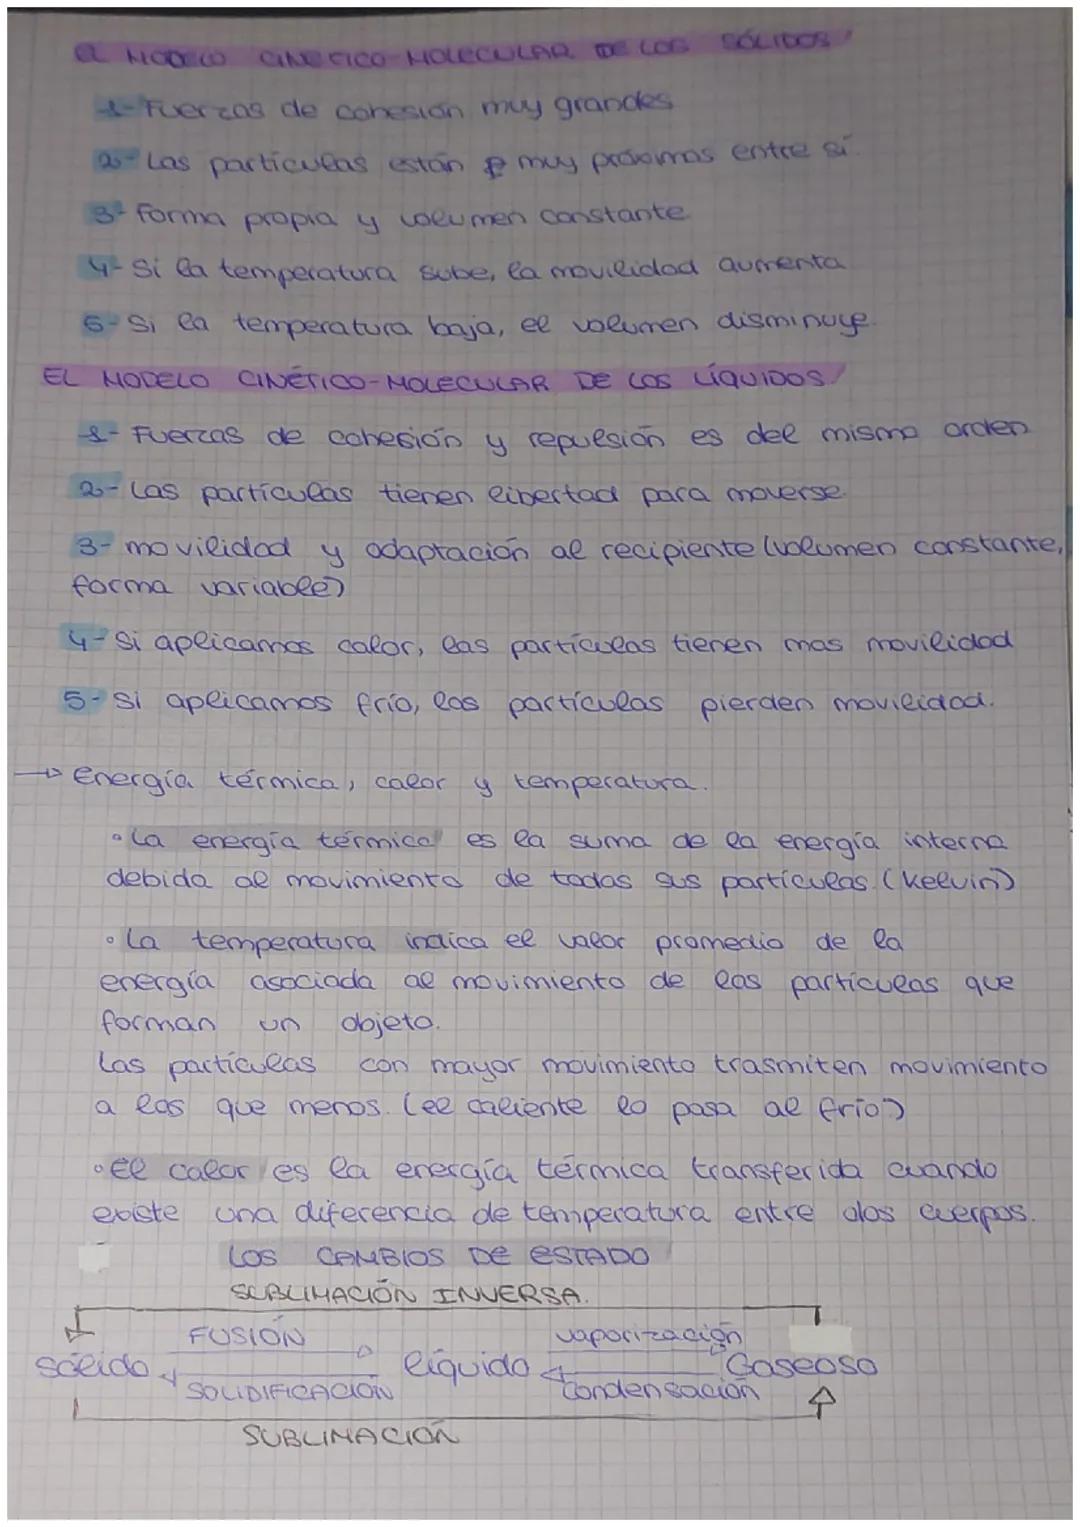 EL MODELO CINETICO-MOLECULAR DE LOS SÓLIDOS
1- Fuerzas de cohesión muy grandes
2- Las partículas están muy próximas entre sí.
3- forma propia y volumen constante
4- Si la temperatura sube, la movilidad aumenta
5- Si la temperatura baja, el volumen disminuye.
EL MODELO CINÉTICO-MOLECULAR DE LOS LÍQUIDOS
1- Fuerzas de cohesión y repulsión es del mismo orden
2- Las partículas tienen libertad para moverse.
3- movilidad y adaptación al recipiente (volumen constante,
forma variable)
4- Si aplicamos calor, las partículas tienen mas movilidad
5- Si aplicamos frío, las partículas pierden movilidad.
→ Energía térmica, calor y temperatura.
• La energía térmica es la suma de la energía interna
debida al movimiento de todas sus partículas. (Kelvin)
• La temperatura indica el valor promedio de la
energía asociada al movimiento de las partículas que
forman un objeto.
Las partículas con mayor movimiento trasmiten movimiento
a las que menos. (el caliente lo pasa al frío)
• El calor es la energía térmica transferida cuando
existe una diferencia de temperatura entre dos cuerpos.
LOS CAMBIOS DE ESTADO
SUBLIMACIÓN INVERSA.
FUSIÓN vaporización
sólido líquido Gaseoso
SOLIDIFICACIÓN Condensación
SUBLIMACIÓN